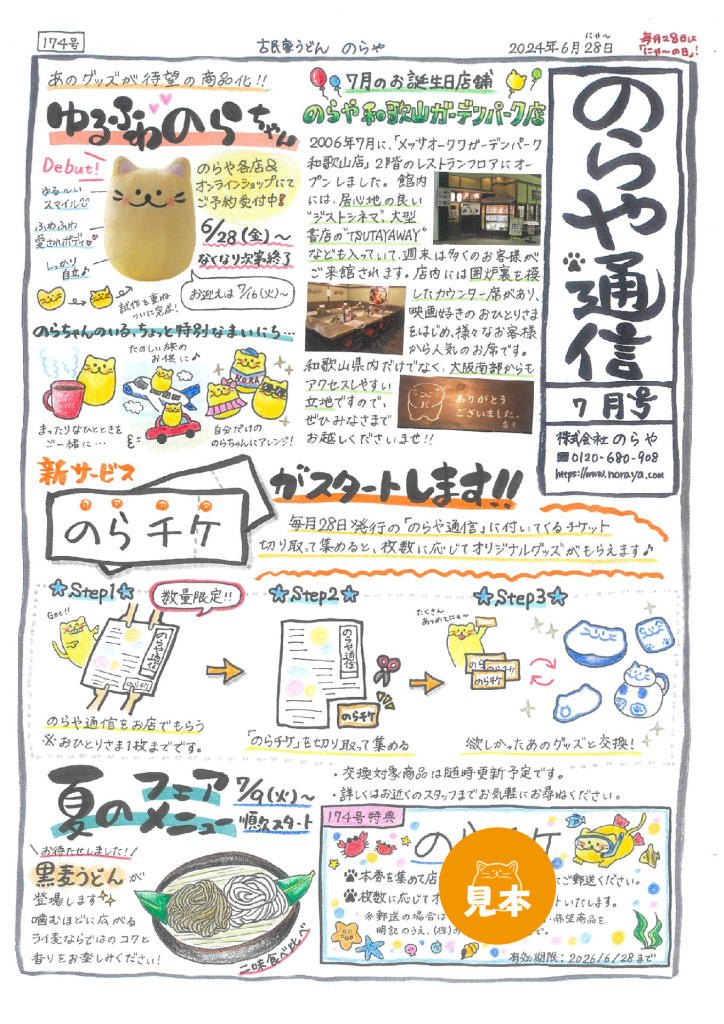 174号
古民家うどん のらや
2024年6月28日
にゃ〜
毎月28日は
「にゃ〜の日」!
のらや通信
7月号
株式会社 のらや
0120-680-908
https://www.noraya.com
あのグッズが待望の商品化!!
ゆるふわのらちゃん
Debut!
ゆる〜い
スマイル
ふわふわ
愛されボディ
しっかり
自立♪
のらや各店&
オンラインショップにて
ご予約受付中!
6/28(金)〜
なくなり次第終了
お迎えは7/16(火)〜
試作を重ね
ついに完成!
のらちゃんのいる、ちょっと特別なまいにち…
まったりなひとときを
ご一緒に…
たのしい旅の
お供に♪
NORA
自分だけの
のらちゃんにアレンジ!
7月のお誕生日店舗
のらや和歌山ガーデンパーク店
2006年7月に、「メッサオークワガーデンパーク
和歌山店」2階のレストランフロアにオー
プンしました。館内
には、居心地の良い
"ジストシネマ"、大型
書店の"TSUTAYAWAY"
なども入っていて、週末は多くのお客様が
ご来館されます。店内には囲炉裏を模
したカウンター席があり、
映画好きのおひとりさま
をはじめ、様々なお客様
から人気のお席です。
和歌山県内だけでなく、大阪南部からも
アクセスしやすい
立地ですので、
ぜひみなさまで
お越しくださいませ!!
ありがとう
ございました。
新サービス
のらチケ
がスタートします!!
毎月28日発行の「のらや通信」に付いてくるチケット
切り取って集めると、枚数に応じてオリジナルグッズがもらえます♪
Step1
数量限定!!
Get!!
のらや通信
のらチケ
のらや通信をお店でもらう
※おひとりさま1枚までです。
Step2
のらや通信
のらチケ
「のらチケ」を切り取って集める
Step3
たくさん
あつめてにゃ〜
のらチケ
のらチケ
欲しかったあのグッズと交換!
・交換対象商品は随時更新予定です。
・詳しくはお近くのスタッフまでお気軽にお尋ねください。
夏のフェアメニュー
7/9(火)〜
順次スタート
お待たせしました!
黒麦うどんが
登場します
噛むほどに広がる
ライ麦ならではのコクと
香りをお楽しみください!
二味食べ比べ
174号特典
のらチケ
本券を集めて店
ご郵送ください。
枚数に応じてオ
トいたします。
※郵送の場合は
希望商品を
明記のうえ、(株)の
で。
有効期限:2026/6/28まで
見本